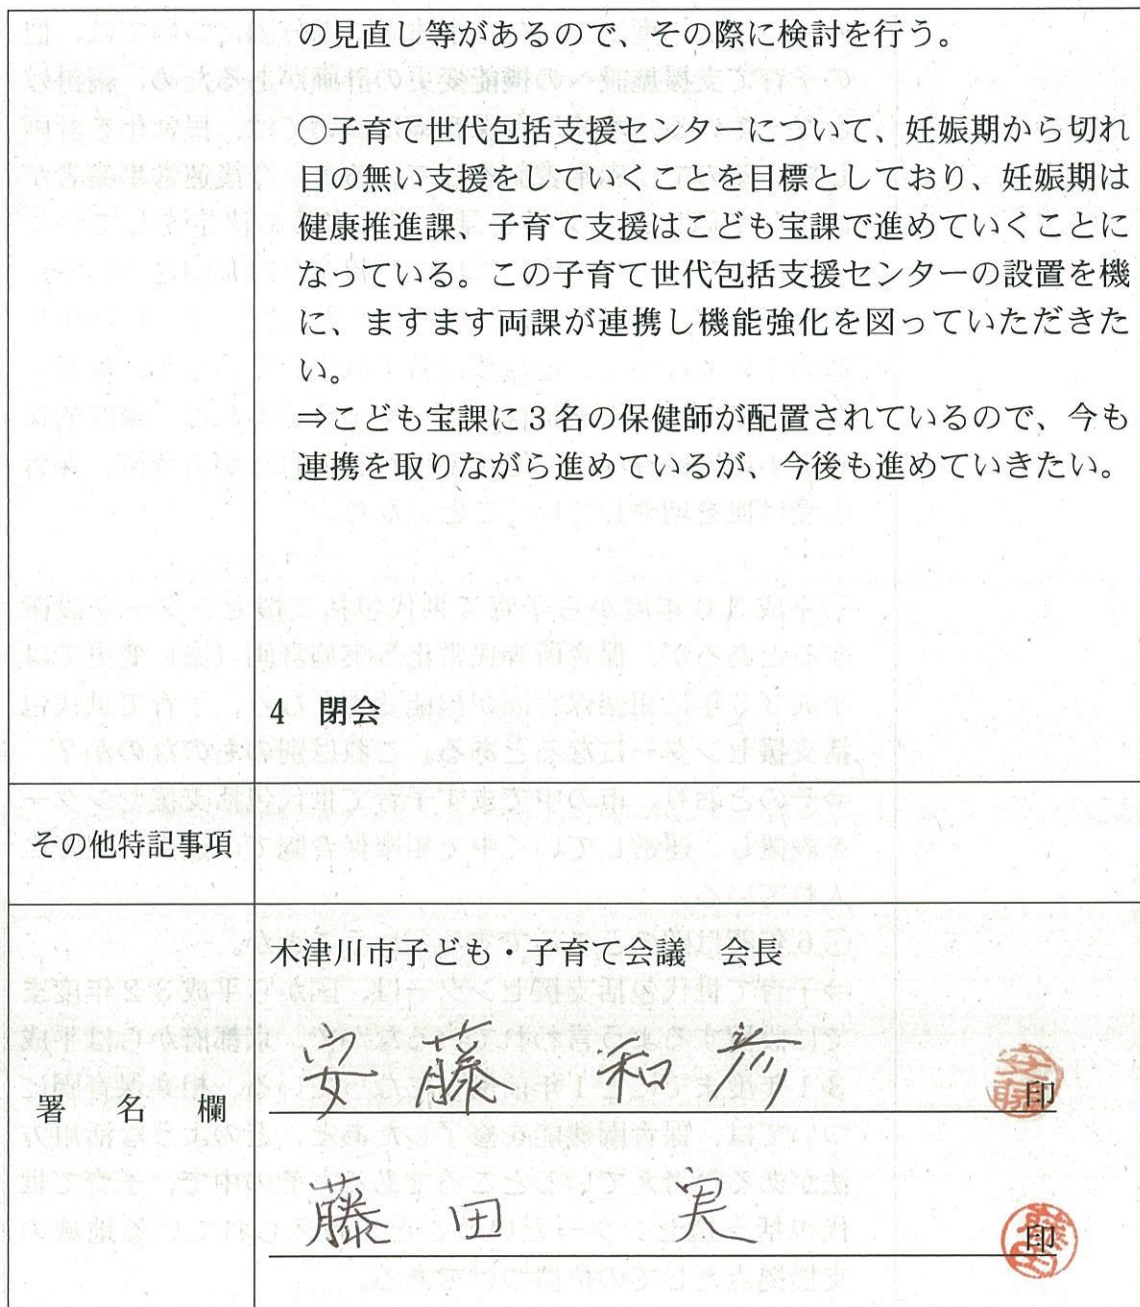 の見直し等があるので、その際に検討を行う。
○子育て世代包括支援センターについて、妊娠期から切れ
目の無い支援をしていくことを目標としており、妊娠期は
健康推進課、子育て支援はこども宝課で進めていくことに
なっている。この子育て世代包括支援センターの設置を機
に、ますます両課が連携し機能強化を図っていただきた
い。
⇒こども宝課に3名の保健師が配置されているので、今も
連携を取りながら進めているが、今後も進めていきたい。
4 閉会
その他特記事項
木津川市子ども・子育て会議 会長
安藤 和彦 印
安藤
署名欄
藤田 実 印